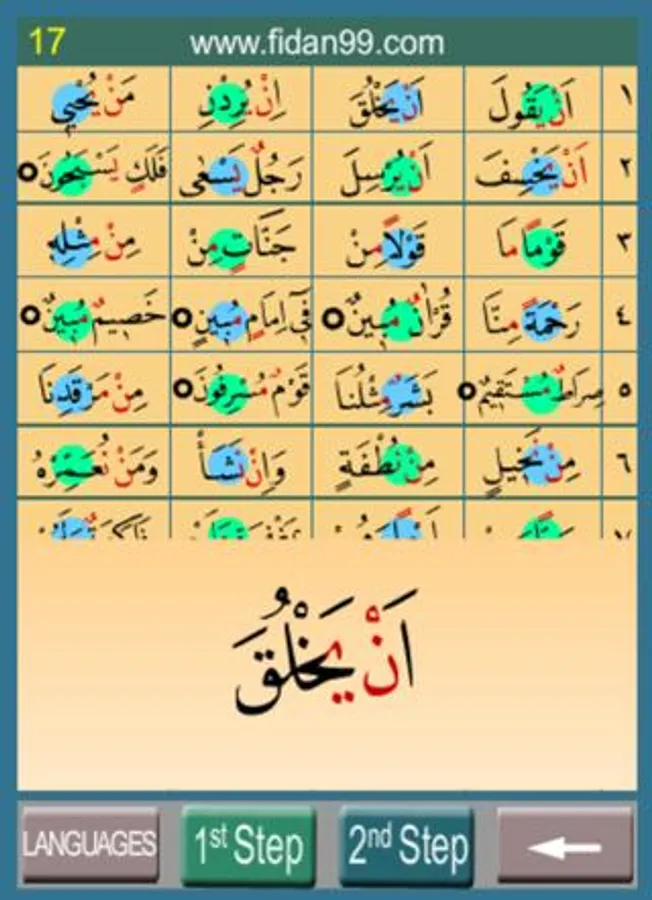 17 www.fidan99.com
١ اَنْ يَقُولَ اَنْ يَخْلُقَ اِنْ يُرِدْنِ مَنْ يُحْيِي
٢ اَنْ يَخْسِفَ اَنْ يُرْسِلَ رَجُلٌ يَسْعٰى فَلَكٍ يَسْبَحُونَ
٣ قَوْمًا مَا قَوْلًا مِنْ جَنَّاتٍ مِنْ مِنْ مِثْلِهِ
٤ رَحْمَةً مِنَّا قُرْاٰنٌ مُبِينٌ فٓى اِمَامٍ مُبِينٍ خَصِيمٌ مُبِينٌ
٥ صِرَاطٌ مُسْتَقِيمٌ بَشَرٌ مِثْلُنَا قَوْمٌ مُسْرِفُونَ مِنْ مَرْقَدِنَا
٦ مِنْ نَخِيلٍ مِنْ نُطْفَةٍ وَاِنْ نَشَأْ وَمَنْ نُعَمِّرْهُ
اَنْ يَخْلُقَ
LANGUAGES 1st Step 2nd Step